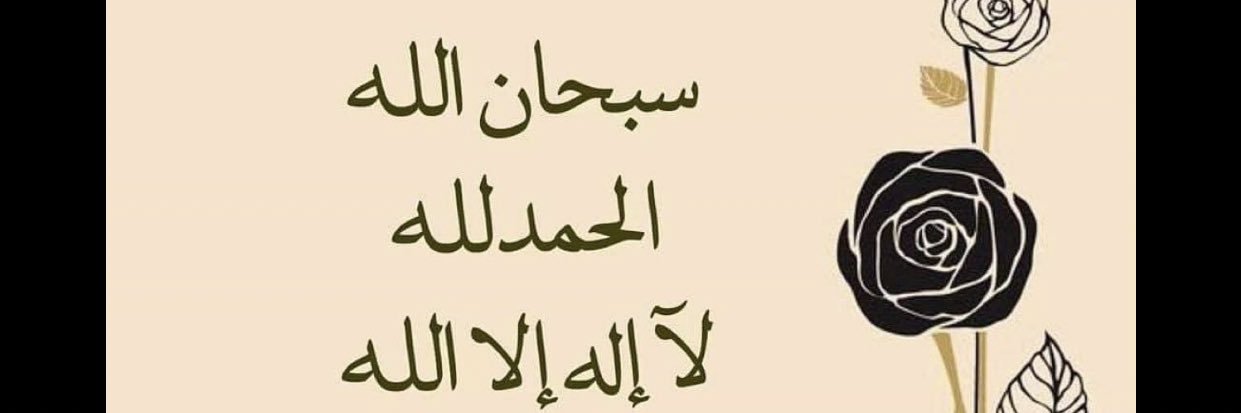 سبحان الله
الحمدلله
لآ إله إلا الله